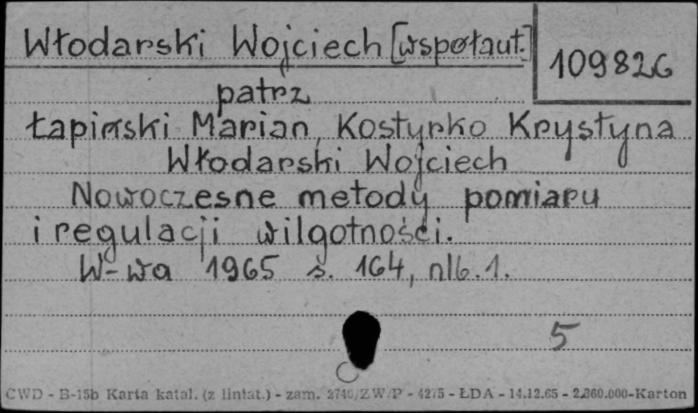 Włodarski Wojciech [współaut.]
109826
patrz
Łapiński Marian, Kostyrko Krystyna
Włodarski Wojciech
Nowoczesne metody pomiaru
i regulacji wilgotności.
W-wa 1965 s. 164, nlb. 1.
5
CWD - B-15b Karta katal. (z liniat.) - zam. 2740/ZW/P - 4275 - ŁDA - 14.12.65 - 2.360.000-Karton